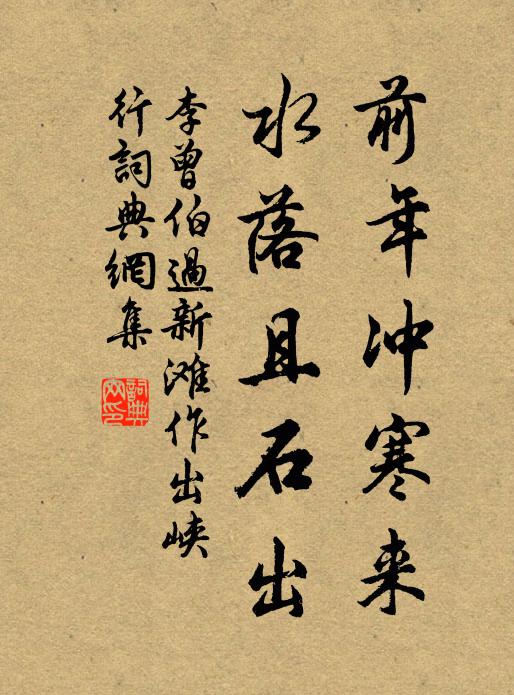 前年冲寒来
水落且石出
李曾伯過新滩作出峡
行詞典網集
詞典网印